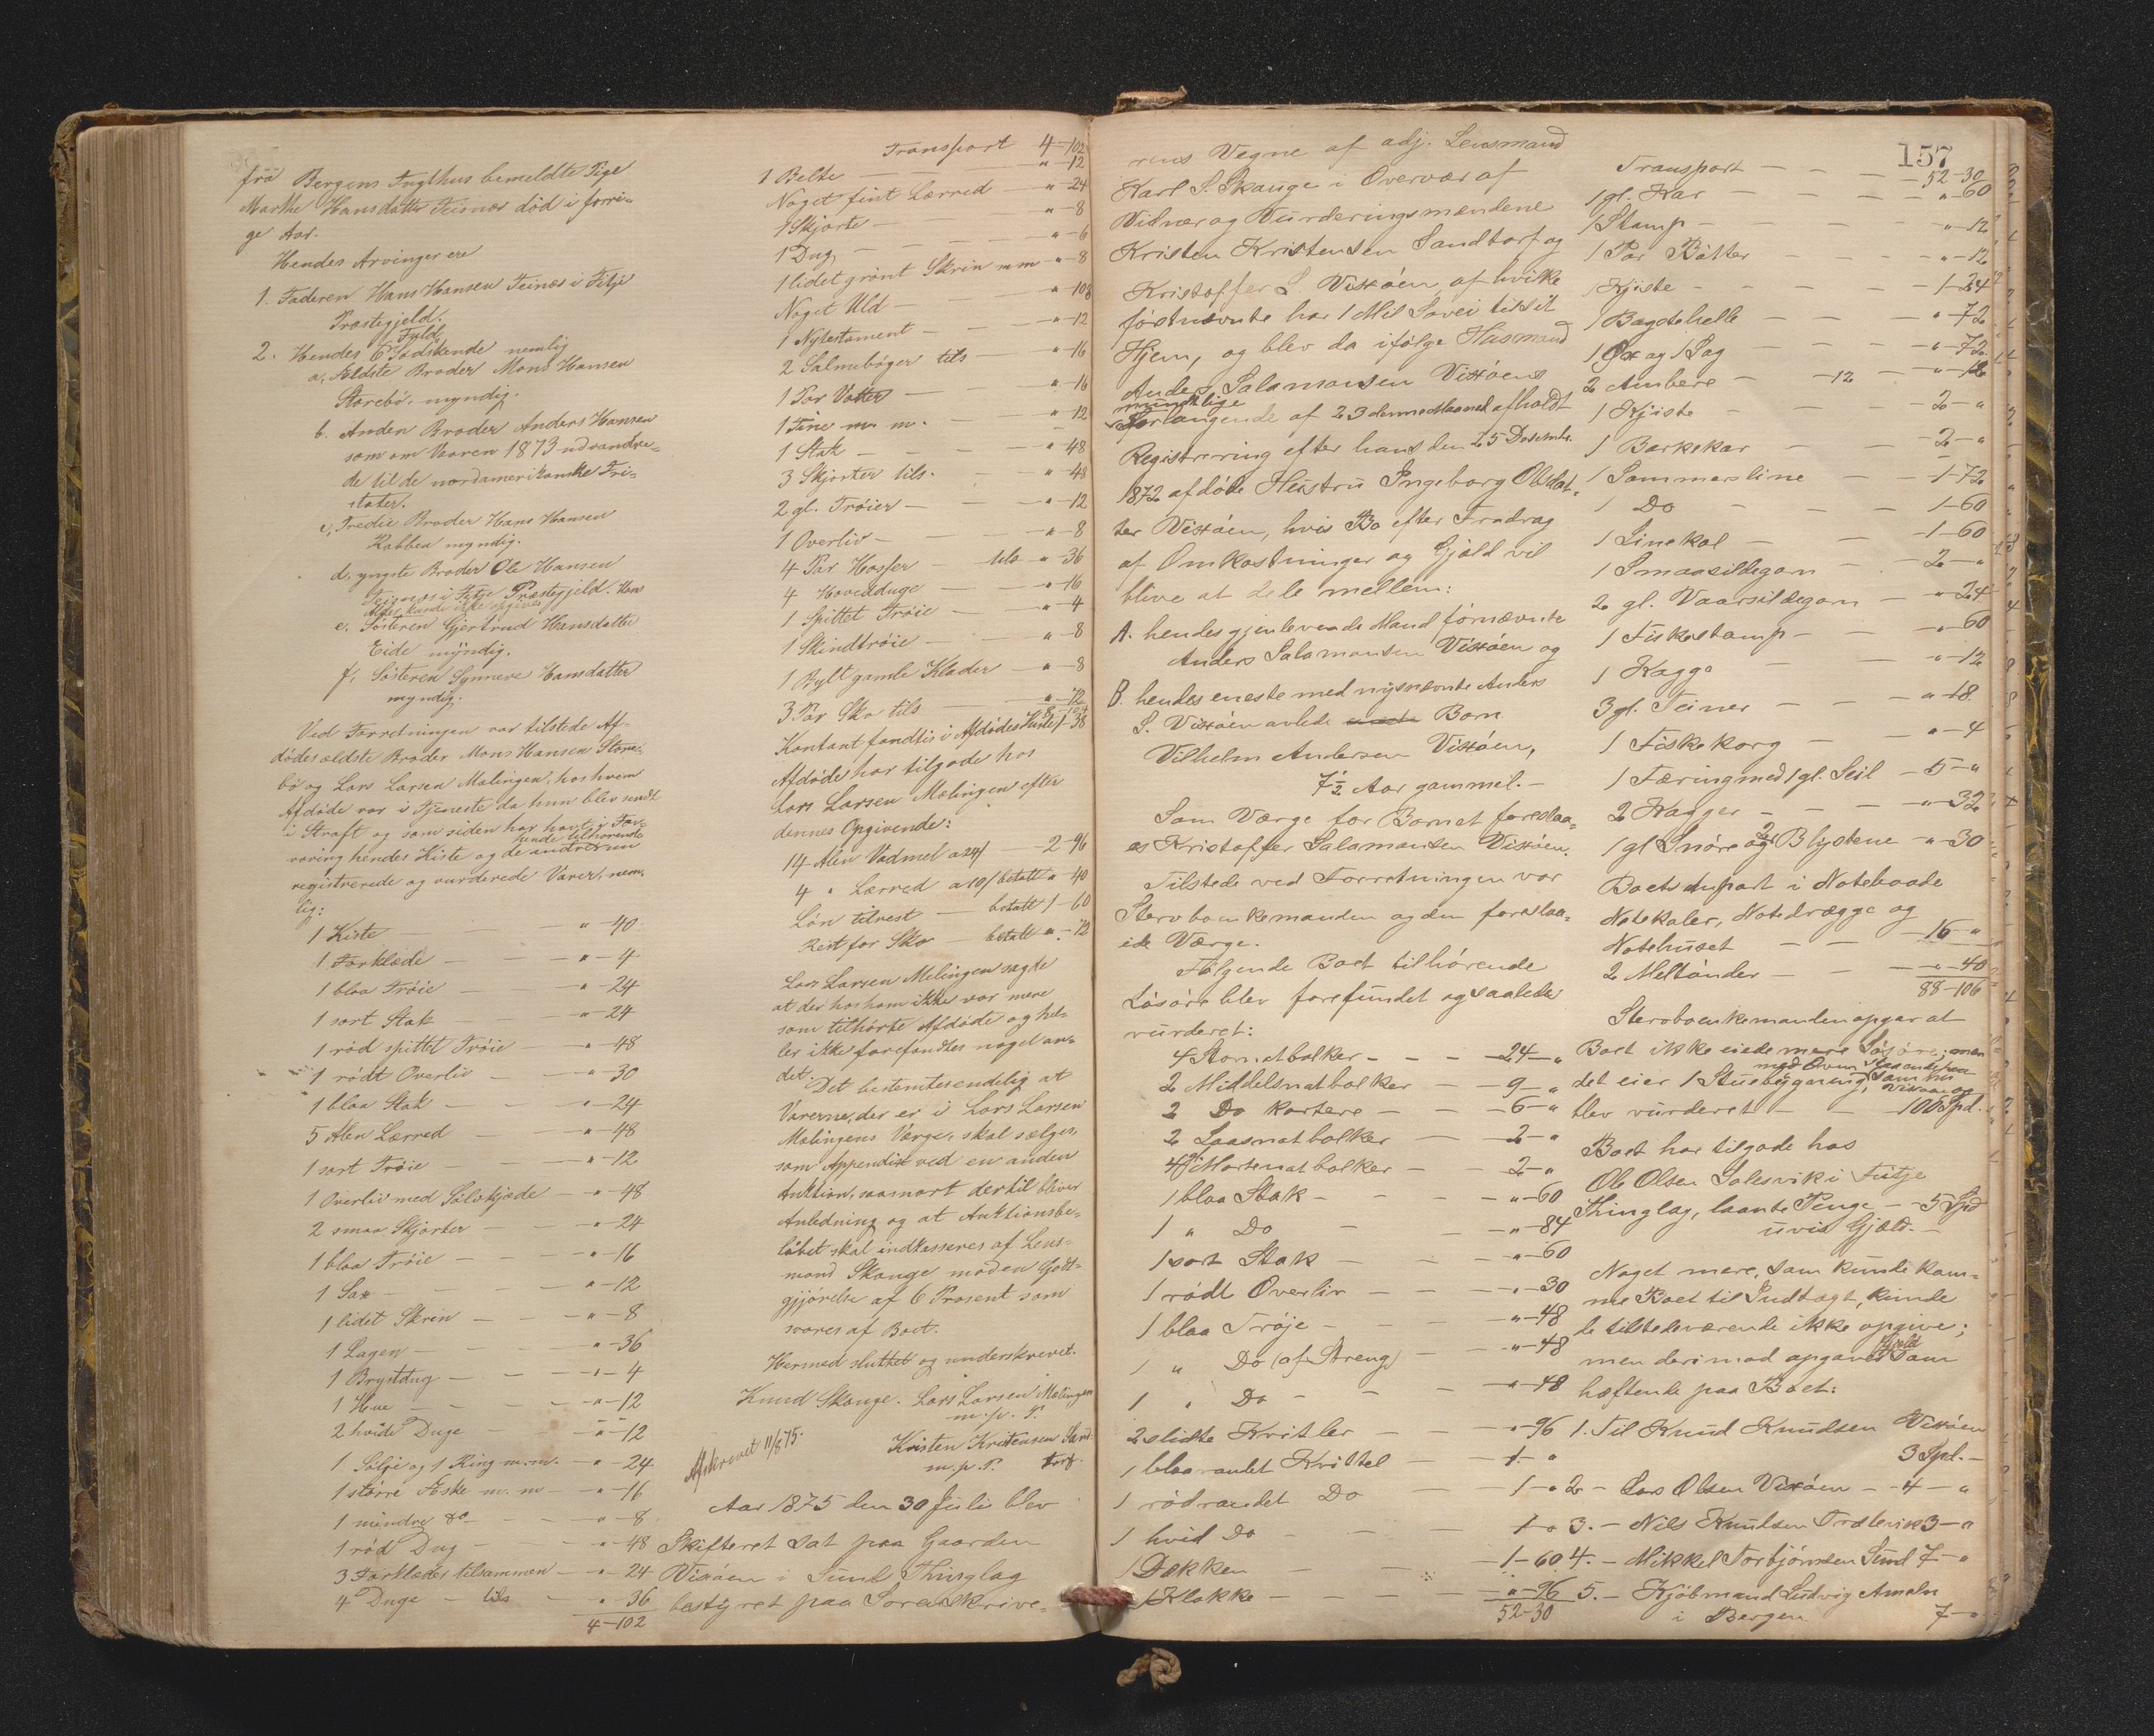 frå Bergens Tugthus bemeldte Pige
Marthe Hansdatter Teinæs død i forri-
ge Aar.
Hendes Arvinger ere
1. Faderen Hans Hansen Teinæs i Fitje
Præstegjeld.
2. Hendes 6 Fuld Sødskende nemlig
a, Ældste Broder Mons Hansen
Storebø, myndig.
b. Anden Broder Anders Hansen
som om Vaaren 1873 udvandre-
de til de nordamerikanske Fri-
stater.
c, Tredie Broder Hans Hansen
Rabben myndig.
d, yngste Broder Ole Hansen
Teinæs i Fitje Præstegjeld. Hans
Alder kunde ikke opgives
e. Søsteren Gjertrud Hansdatter
Eide myndig.
f, Søsteren Synneve Hansdatter
myndig.
Ved Forretningen var tilstede Af-
dødes ældste Broder Mons Hansen Store-
bø og Lars Larsen Malingen, hos hvem
Afdøde var i Tjeneste da hun blev sendt
i Straff og som siden har havt i For-
varing hendes Kiste og de hende tilhørende andre nu
registrerede og vurderede Varer, nem-
lig:
1 Kiste — " - 40
1 Forklæde — " - 4
1 blaa Trøie — " - 24
1 sort Stak — " - 24
1 rød spittet Trøie — " - 48
1 rødt Overliv — " - 30
1 blaa Stak — " - 24
5 Alen Lærred — " - 48
1 sort Trøie — " - 12
1 Overliv med Sølvkjæde — " - 48
2 smaa Skjorter — " - 24
1 blaa Trøie — " - 16
1 Sax — " - 12
1 lidet Skrin — " - 8
1 Lagen — " - 36
1 Brystdug — " - 4
1 Hue — " - 12
2 hvide Duge — " - 12
1 Sølje og 1 Ring m.m. — " - 24
1 større Æske m.m — " - 16
1 mindre do — " - 8
1 rød Dug — " - 48
3 Forklæder tilsammen — " - 24
4 Duge — tils — " - 36
4 - 102
Transport 4 - 102
1 Belte — " - 12
Noget fint Lærred — " - 24
1 Skjorte — " - 8
1 Dug — " - 6
1 lidet grønt Skrin m m " - 8
Noget Uld — " - 108
1 Nytestament — " - 12
2 Salmebøger tils — " - 16
1 Par Votter — " - 16
1 Tine m. m. — " - 12
1 Stak — " - 48
3 Skjorter tils. " - 48
2 gl. Trøier — " - 12
1 Overliv — " - 8
4 Par Hoser — tils " - 36
4 Hovedduge — " - 16
1 Spittet Trøie — " - 4
1 Skindtrøie — " - 8
1 Bylt gamle Klæder — " - 8
3 Par Sko tils — " - 72
8 - 104
Kontant fandtes i Afdødes Kiste 1 - 38
Afdøde har tilgode hos
Lars Larsen Malingen efter
dennes Opgivende:
14 Alen Vadmel a 24/ — 2 - 96
4 " Lærred a 10/ betalt " - 40
Løn tilrest — betalt 1 - 60
Rest for Sko — betalt " - 12
Lars Larsen Malingen sagde
at der hos ham ikke var mere
som tilhørte Afdøde og hel-
ler ikke forefandtes noget an-
det.
Det bestemtes endelig at
Varerne, der er i Lars Larsen
Malingens Værge, skal sælges
som Appendix ved en anden
Auktion, saasnart dertil bliver
Anledning og at Auktionsbe-
løbet skal indkasseres af Lens-
mand Skauge mod en Godt-
gjørelse af 6 Prosent som
svares af Boet.
Hermed sluttet og underskrevet.
Knud Skauge. Lars Larsen Malingen
m. p. P.
Kristen Kristensen Sand-
m. p. P. torf.
Afskrevet 11/8 75.
Aar 1875 den 30 Juli blev
Skifteret sat paa Gaarden
Vixøen i Sund Thinglag
bestyret paa Sorenskrive-
157
rens Vegne af adj. Lensmand
Karl S. Skauge i Overvær af
Vidner og Vurderingsmændene
Kristen Kristensen Sandtorf og
Kristoffer S. Vixøen, af hvilke
førstnævnte har 1 Mil Søvei til sit
Hjem, og blev da ifølge Husmand
Anders Salamonsen Vixøens
mundtlige
Forlangende af 23 denne Maaned afholdt
Registrering efter hans den 25 Desember
1872 afdøde Hustru Ingeborg Olsdat-
ter Vixøen, hvis Bo efter Fradrag
af Omkostninger og Gjæld vil
blive at dele mellem:
A. hendes gjenlevende Mand fornævnte
Anders Salamonsen Vixøen og
B. hendes eneste med nysnævnte Anders
S. Vixøen avlede Barn
Vilhelm Andersen Vixøen,
7½ Aar gammel. —
Som Værge for Barnet foreslaa-
es Kristoffer Salamonsen Vixøen.
Tilstede ved Forretningen var
Stervboenkemanden og den foreslaa-
ede Værge.
Følgende Boet tilhørende
Løsøre blev forefundet og saaledes
vurderet:
4 Stornatbolker — 24 - "
2 Middelsnatbolker — 9 - "
2 Do kortere — 6 - "
2 Laasnatbolker — 2 - "
4 Mortenatbolker — 2 - "
1 blaa Stak — " - 60
1 " Do — " - 84
1 sort Stak — " - 60
1 rødt Overliv — " - 30
1 blaa Trøje — " - 48
" Do (af Streng) — " - 48
1 " Do — " - 48
2 slidte Kvitler — " - 96
1 blaarandet Kvittel — 1 - "
1 rødrandet Do — 1 - "
1 hvid Do — 1 - "
1 Dækken — 1 - 60
1 Klokke — " - 96
52 - 30
Transport — 52 - 30
1 gl. Kar — " - 60
1 Stamp — " - 12
1 Par Bøtter — " - 12
1 Kjiste — 1 - 24
1 Bagstehelle — " - 72
1 Øx og 1 Sag — " - 72
2 Ambere — 12 — " - 18
1 Kjiste — 2 - "
1 Barkekar — 2 - "
1 Sommersline — 1 - 72
1 Do — 1 - 60
1 Linekol — 1 - 60
1 Smaasildegarn — 2 - "
2 gl. Vaarsildegarn — " - 24
1 Fiskestamp — " - 60
1 Kagge — " - 12
3 gl. Teiner — " - 18
1 Fiskekorg — " - 4
1 Færing med 1 gl. Seil — 5 - "
2 Kagger — " - 32
1 gl Snøre og 2 Blystene " - 30
Boets Anpart i Notebaade
Notekaler, Notedrægge og
Notehuset — 16 - "
2 Meltønder — " - 40
88 - 106
Stervboenkemanden opgav at
Boet ikke eiede mere Løsøre; men
det eier 1 Stuebygning, med Ovn staaende paa Vixøen og som nu
blev vurderet — 100 Spd.
Boet har tilgode hos
Ole Olsen Salesvik i Fitje
Thinglag, laante Penge — 5 Spd
uvis Gjæld. —
Noget mere, som kunde kom-
me Boet til Indtægt, kunde
de tilstedeværende ikke opgive;
men derimod opgaves Gjæld som
hæftende paa Boet:
1. Til Knud Knudsen Vixøen
3 Spd. —
2 — Lars Olsen Vixøen — 4 - "
3. — Nils Knudsen Trælevik 3 - "
4. — Mikkel Torbjørnsen Sund 7 - "
5. — Kjøbmand Ludvig Amaln
i Bergen 7 - "